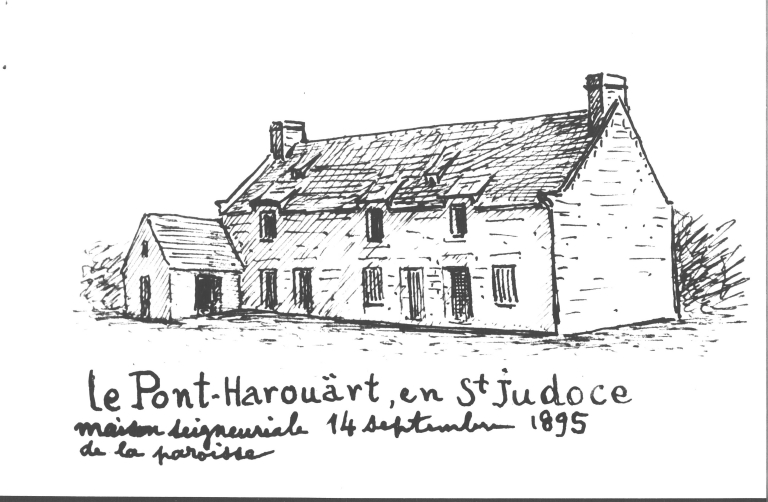 le Pont-Harouärt, en St Judoce
maison seigneuriale 14 septembre 1895
de la paroisse